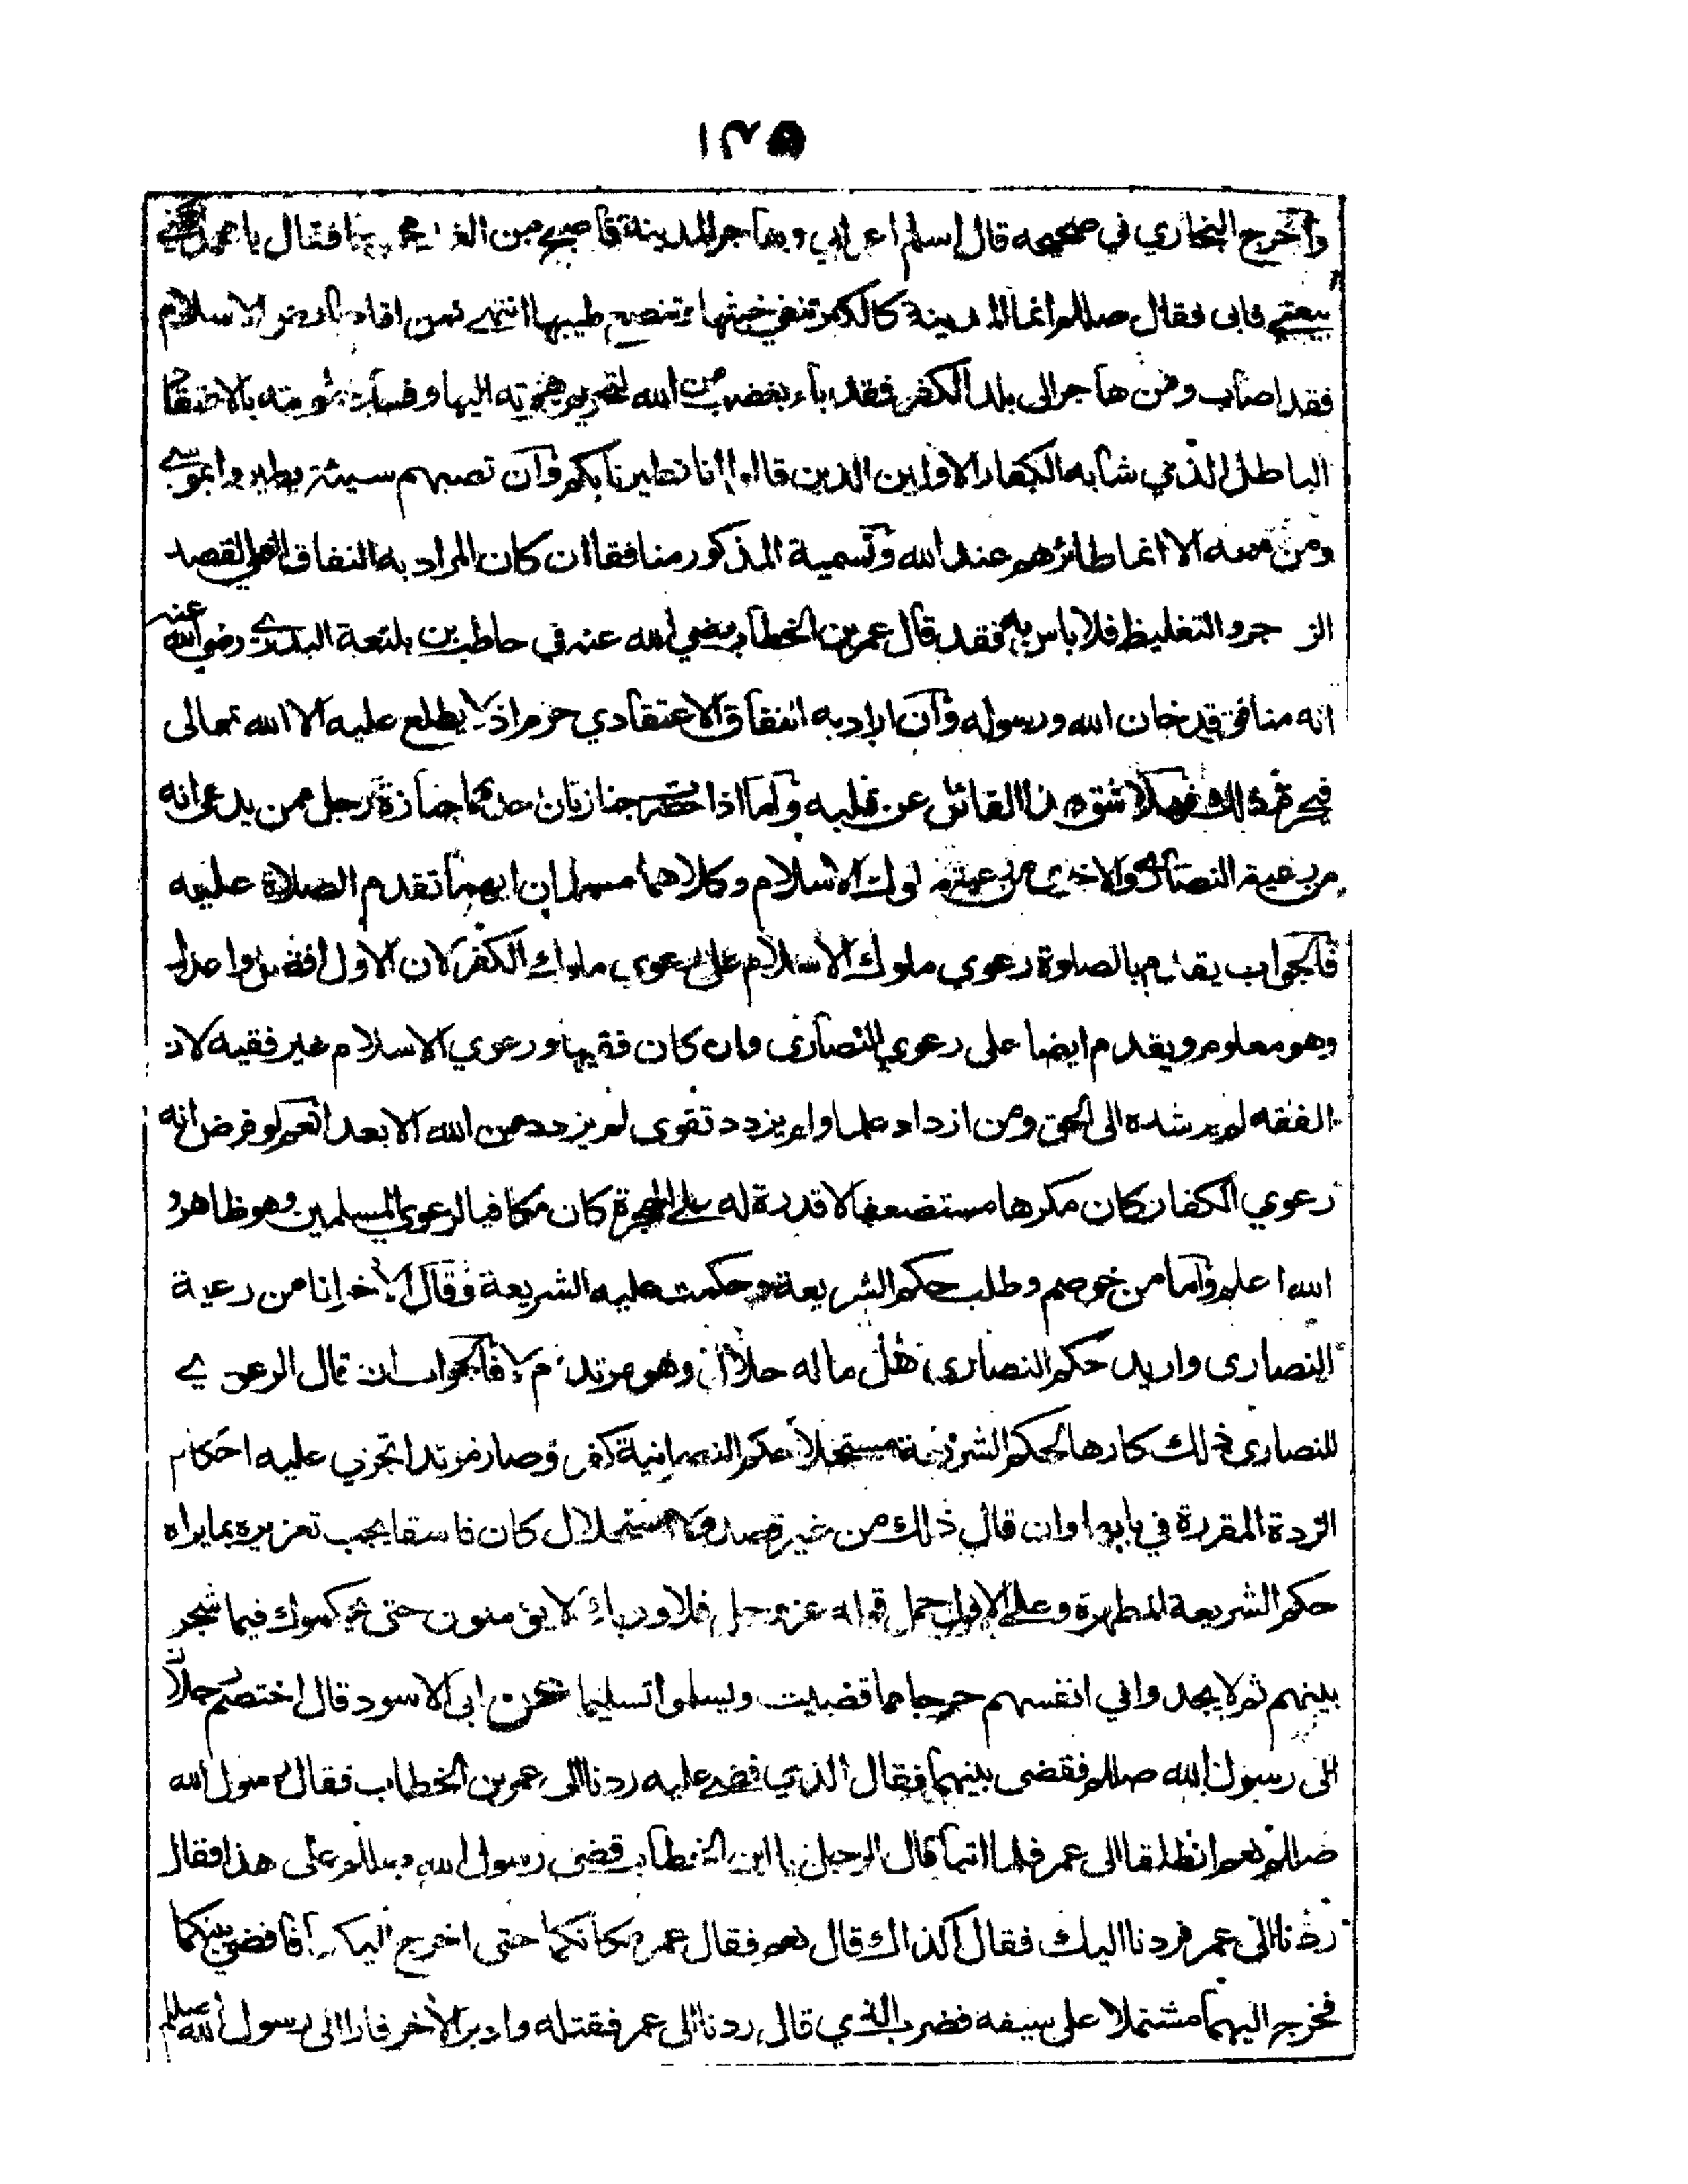 ١٣٥
وأخرج البخاري في صحيحه قال اسلم اعرابي وهاجر المدينة فاصبح من الغد محموما فقال يا محمد اقلني
بيعتي فابى فقال صللم انما المدينة كالكير تنفي خبثها وتنصع طيبها انتهى فمن اقام بارض الاسلام
فقد اصاب ومن هاجر الى بلد الكفر فقد باء بغضب من الله لتحريم هجرته اليها وفساد بالاعتقاد
الباطل الذي شابه الكفار الاولين الذين قالوا انا تطيرنا بكم وان تصبهم سيئة يطيروا بموسى
ومن معه الا انما طائرهم عند الله وتسمية المذكور منافقا ان كان المراد به النفاق العملي لقصد
الزجر والتغليظ فلا باس به فقد قال عمر بن الخطاب رضي الله عنه في حاطب بن بلتعة البدري رضي الله عنه
انه منافق قد خان الله ورسوله وان اراد به النفاق الاعتقادي حرم اذ لا يطلع عليه الا الله تعالى
فيحرم ذلك فهلا شق هذا القائل عن قلبه وأما اذا حضر جنازتان احدهما جنازة رجل ممن يدعى انه
من رعية النصارى والاخرى من رعية ملوك الاسلام وكلاهما مسلمان ايهما تقدم الصلاة عليه
فالجواب يقدم بالصلوة رعوي ملوك الاسلام على رعوي ملوك الكفر لان الاول افضل واعدل
وهو معلوم ويقدم ايضا على رعوي النصارى وان كان فقيها ورعوي الاسلام غير فقيه لان
الفقه لم يرشده الى الحق ومن ازداد علما ولم يزدد تقوى لم يزدد من الله الا بعدا نعم لو فرض انه
رعوي الكفار كان مكرها مستضعفا لا قدرة له على الهجرة كان مكافيا لرعوي المسلمين وهو ظاهر و
الله اعلم وأما من خوصم وطلب حكم الشريعة وحكمت عليه الشريعة وقال الاخر انا من رعية
النصارى واريد حكم النصارى هل ماله حلال وهو مرتد ام لا فالجواب ان قال الرعوي
للنصارى ذلك كارها لحكم الشريعة مستحلا حكم النصرانية كفر وصار مرتدا تجري عليه احكام
الردة المقررة في بابها وان قال ذلك من غير قصد ولا استحلال كان فاسقا يجب تعزيره بما يراه
حكم الشريعة المطهرة وعلى الاول حمل قوله عز وجل فلا وربك لا يؤمنون حتى يحكموك فيما شجر
بينهم ثم لا يجدوا في انفسهم حرجا مما قضيت ويسلموا تسليما عن ابي الاسود قال اختصم رجلان
الى رسول الله صللم فقضى بينهما فقال الذي قضى عليه ردنا الى عمر بن الخطاب فقال رسول الله
صللم نعم انطلقا الى عمر فلما اتيا قال الرجل يا ابن الخطاب قضى رسول الله صللم على هذا فقال
ردنا الى عمر فردنا اليك فقال أكذاك قال نعم فقال عمر مكانكما حتى اخرج اليكما فاقضي بينكما
فخرج اليهما مشتملا على سيفه فضرب الذي قال ردنا الى عمر فقتله وادبر الآخر فارا الى رسول الله صللم